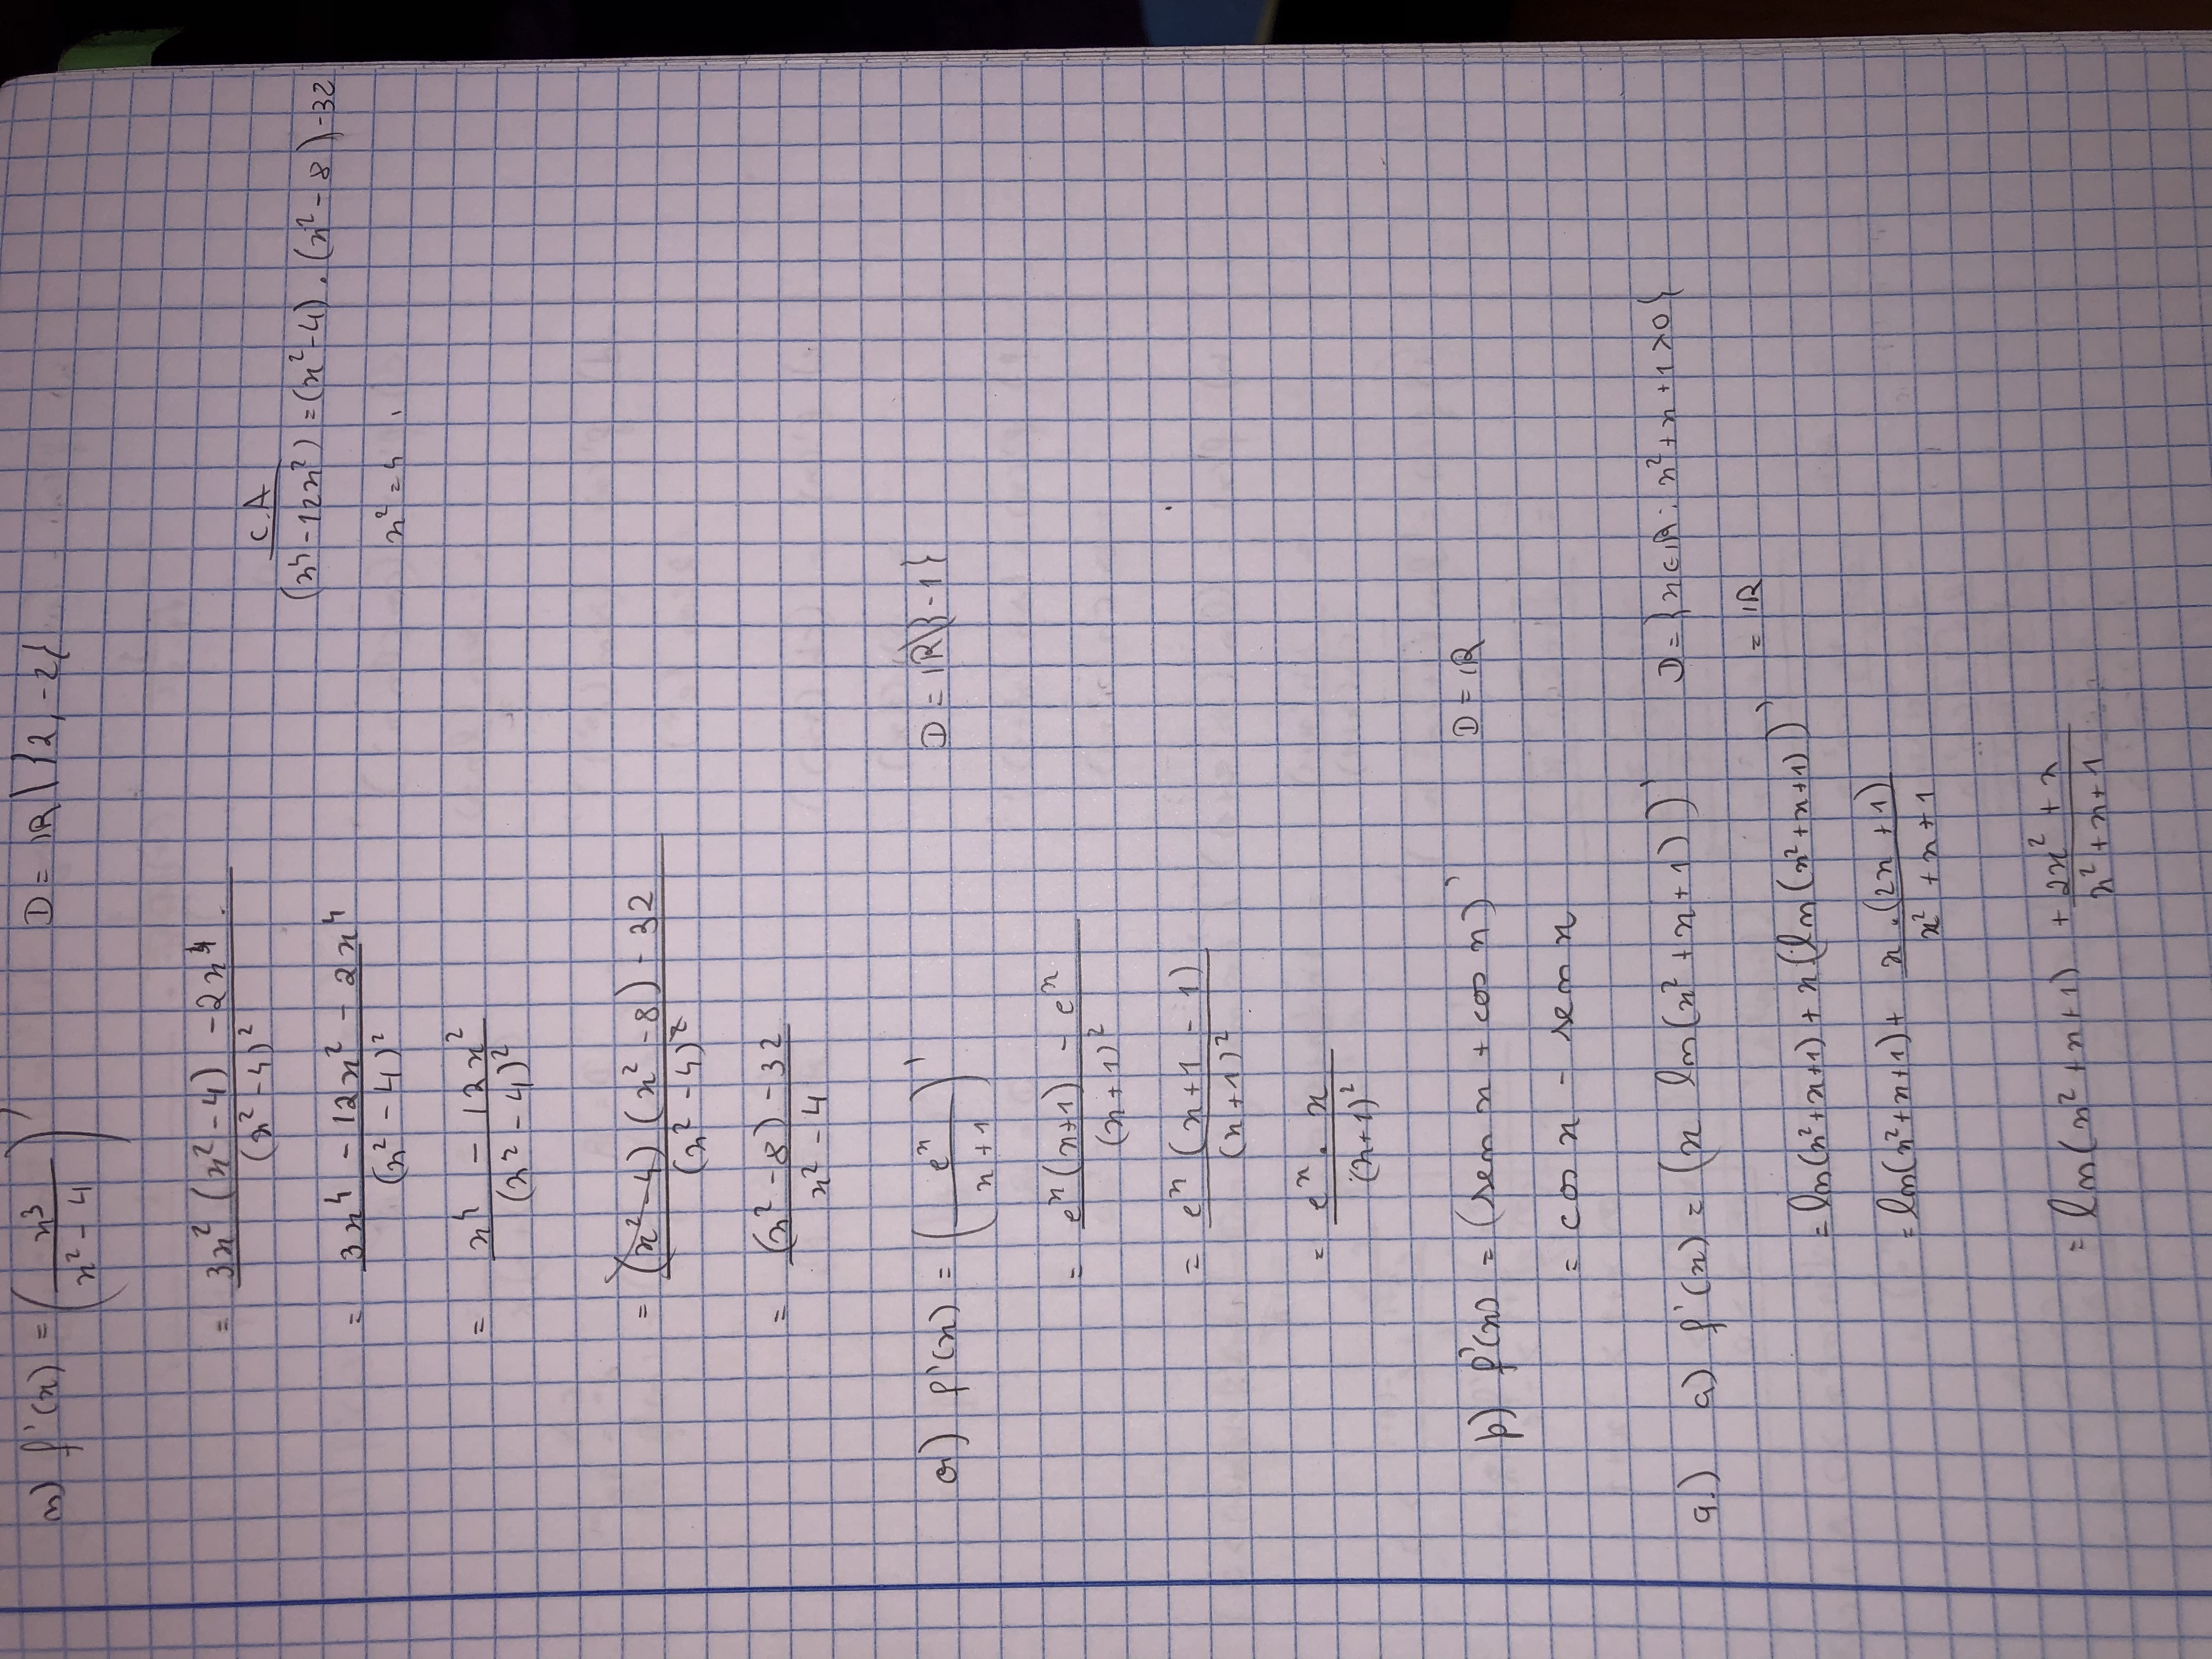 n) f'(x) = (x³ / (x² - 4))' D = ℝ \ {2, -2}
= (3x² (x² - 4) - 2x⁴) / (x² - 4)²
C.A
(x⁴ - 12x²) = (x² - 4) . (x² - 8) - 32
= (3x⁴ - 12x² - 2x⁴) / (x² - 4)²
x² = 4
= (x⁴ - 12x²) / (x² - 4)²
= ((x² - 4) (x² - 8) - 32) / (x² - 4)²
= ((x² - 8) - 32) / (x² - 4)
o) f'(x) = (eˣ / (x + 1))' D = ℝ \ {-1}
= (eˣ (x+1) - eˣ) / (x + 1)²
= (eˣ (x + 1 - 1)) / (x + 1)²
= (eˣ . x) / (x+1)²
p) f'(x) = (sen x + cos x)' D = ℝ
= cos x - sen x
9.) a) f'(x) = (x ln(x² + x + 1))' D = {x ∈ ℝ : x² + x + 1 > 0}
= ℝ
= ln(x² + x + 1) + x (ln (x² + x + 1))'
= ln(x² + x + 1) + (x . (2x + 1)) / (x² + x + 1)
= ln(x² + x + 1) + (2x² + x) / (x² + x + 1)